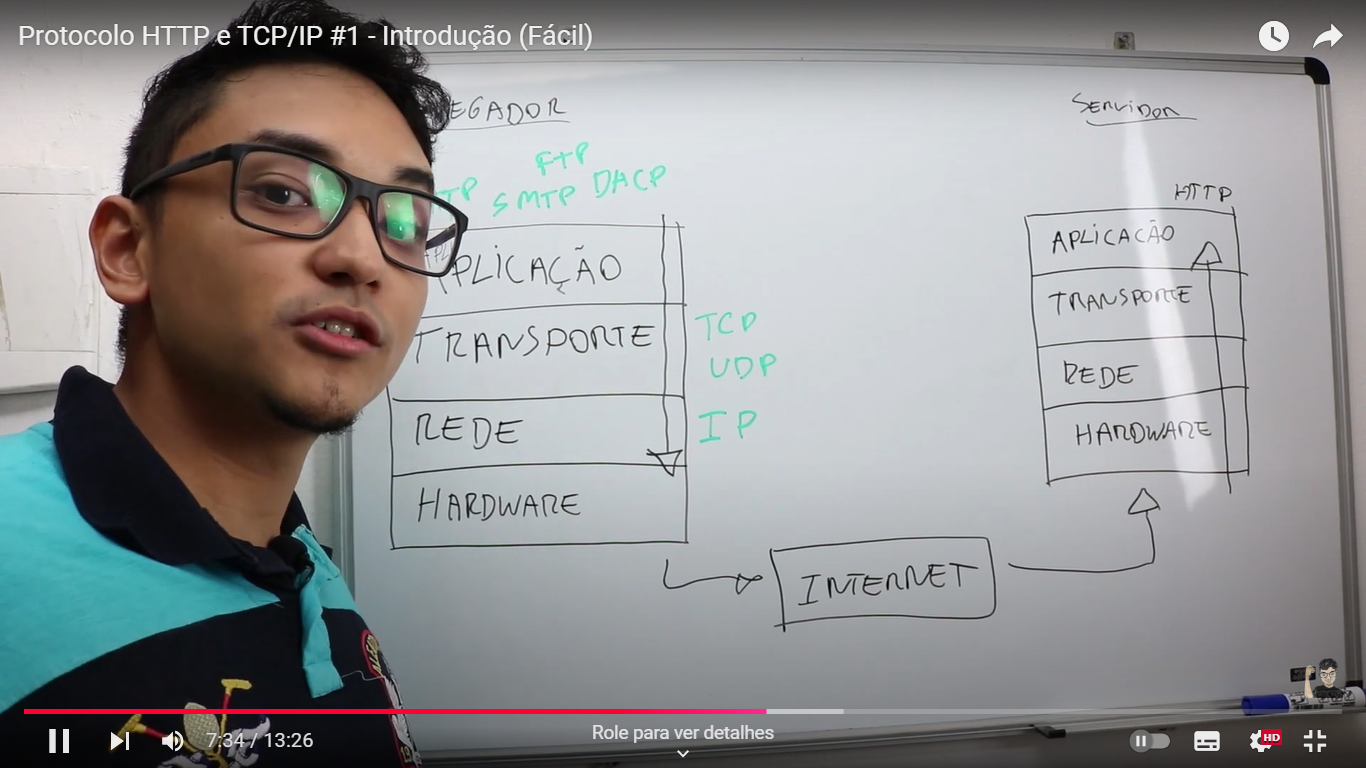 Protocolo HTTP e TCP/IP #1 - Introdução (Fácil)
EGADOR
SERVIDOR
FTP
TP SMTP DACP
HTTP
APLICAÇÃO
TRANSPORTE
REDE
HARDWARE
TCP
UDP
IP
APLICAÇÃO
TRANSPORTE
REDE
HARDWARE
INTERNET
7:34 / 13:26
Role para ver detalhes
HD